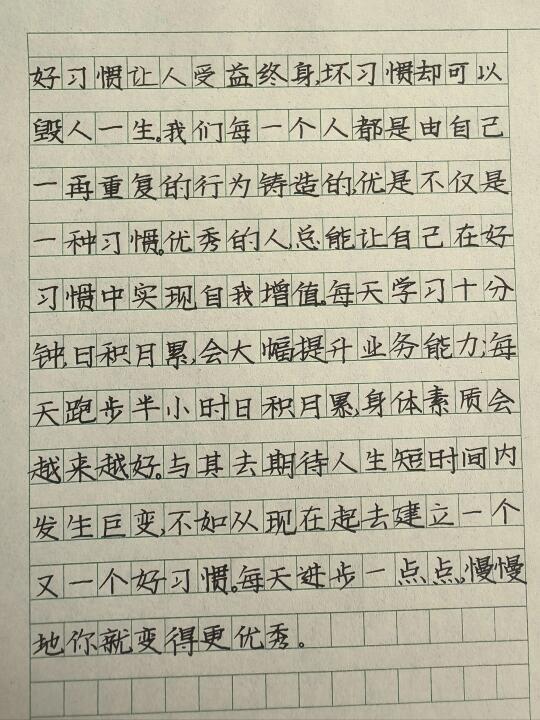 好习惯让人受益终身,坏习惯却可以
毁人一生。我们每一个人都是由自己
一再重复的行为铸造的,优是不仅是
一种习惯。优秀的人总能让自己在好
习惯中实现自我增值。每天学习十分
钟,日积月累,会大幅提升业务能力;每
天跑步半小时日积月累,身体素质会
越来越好。与其去期待人生短时间内
发生巨变,不如从现在起去建立一个
又一个好习惯。每天进步一点点。慢慢
地你就变得更优秀。